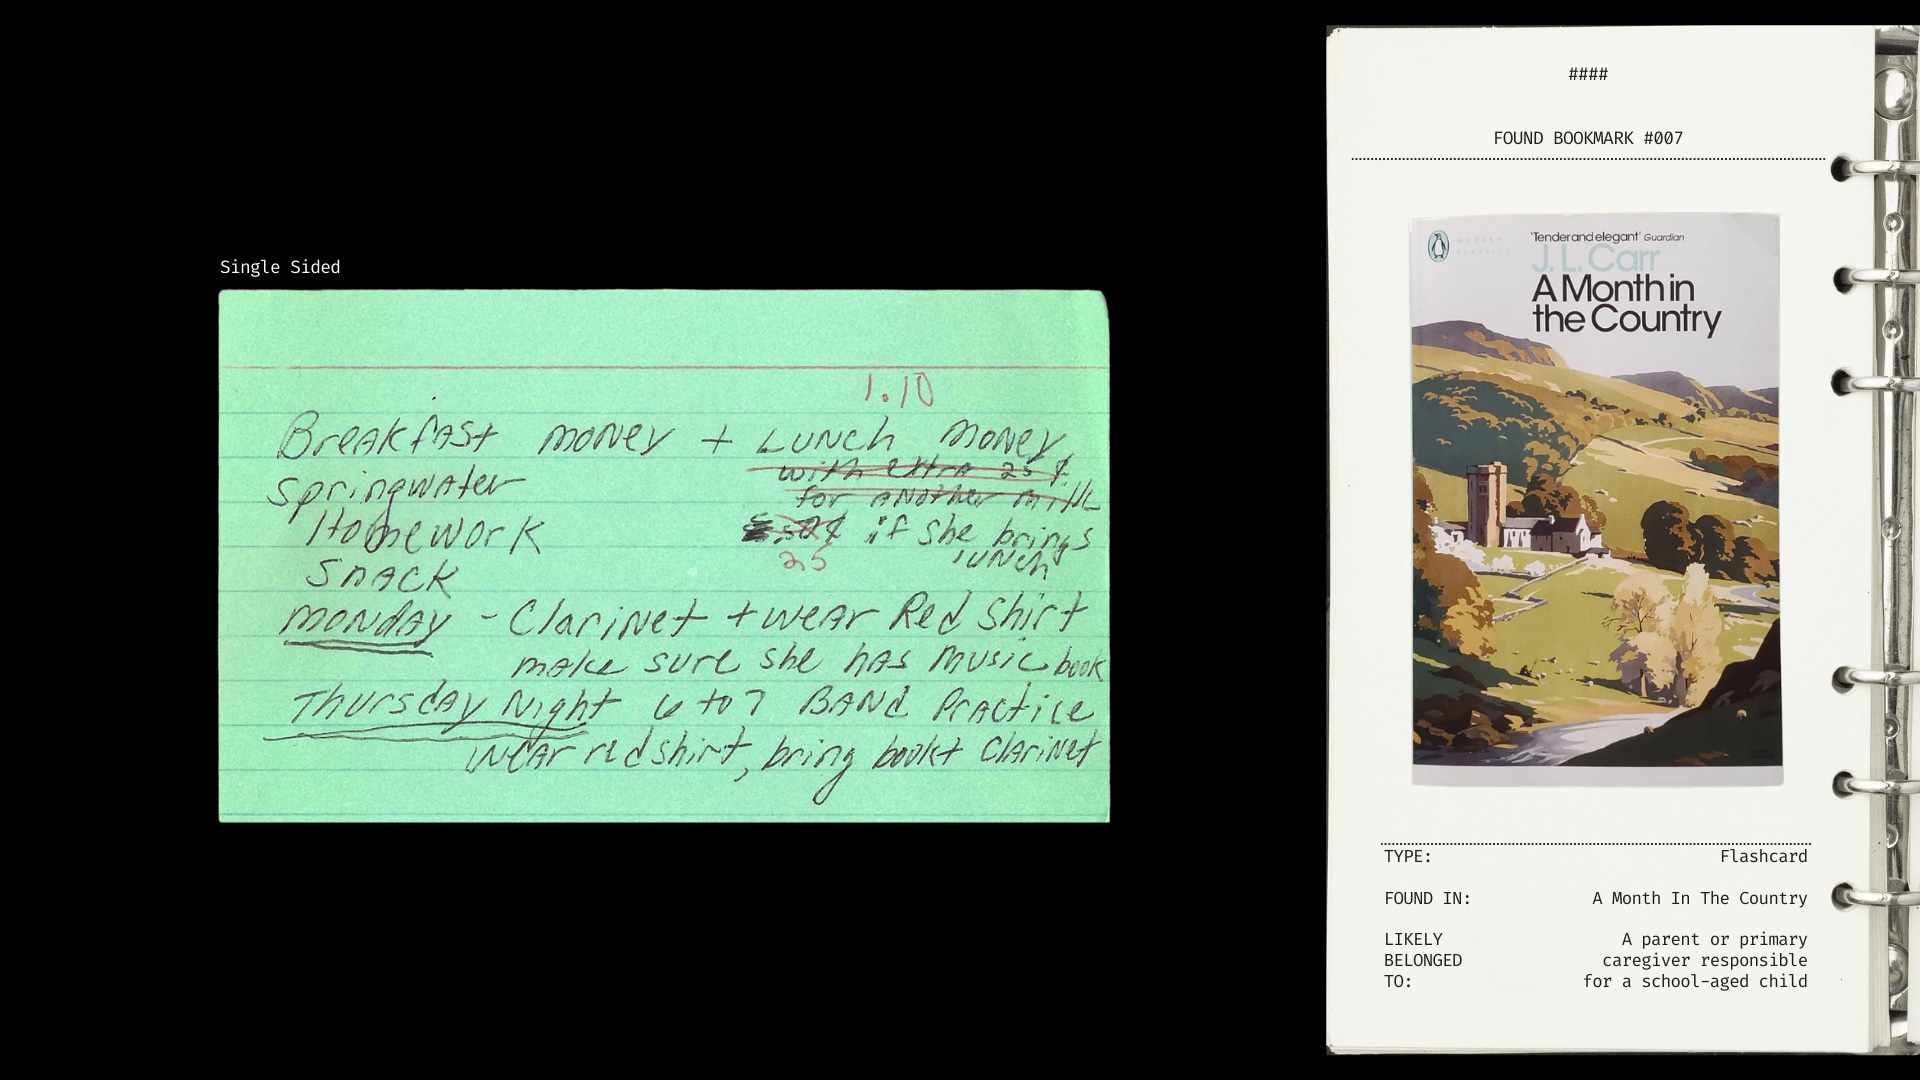 Single Sided
1.10
Breakfast money + Lunch money
with extra 25¢
Springwater
for another milk
Homework
if she brings
lunch
25
Snack
Monday - Clarinet + wear Red Shirt
make sure she has music book
Thursday Night 6 to 7 BAND Practice
Wear red shirt, bring book + Clarinet
####
FOUND BOOKMARK #007
MODERN
CLASSICS
'Tender and elegant' Guardian
J. L. Carr
A Month in
the Country
TYPE: Flashcard
FOUND IN: A Month In The Country
LIKELY A parent or primary
BELONGED caregiver responsible
TO: for a school-aged child